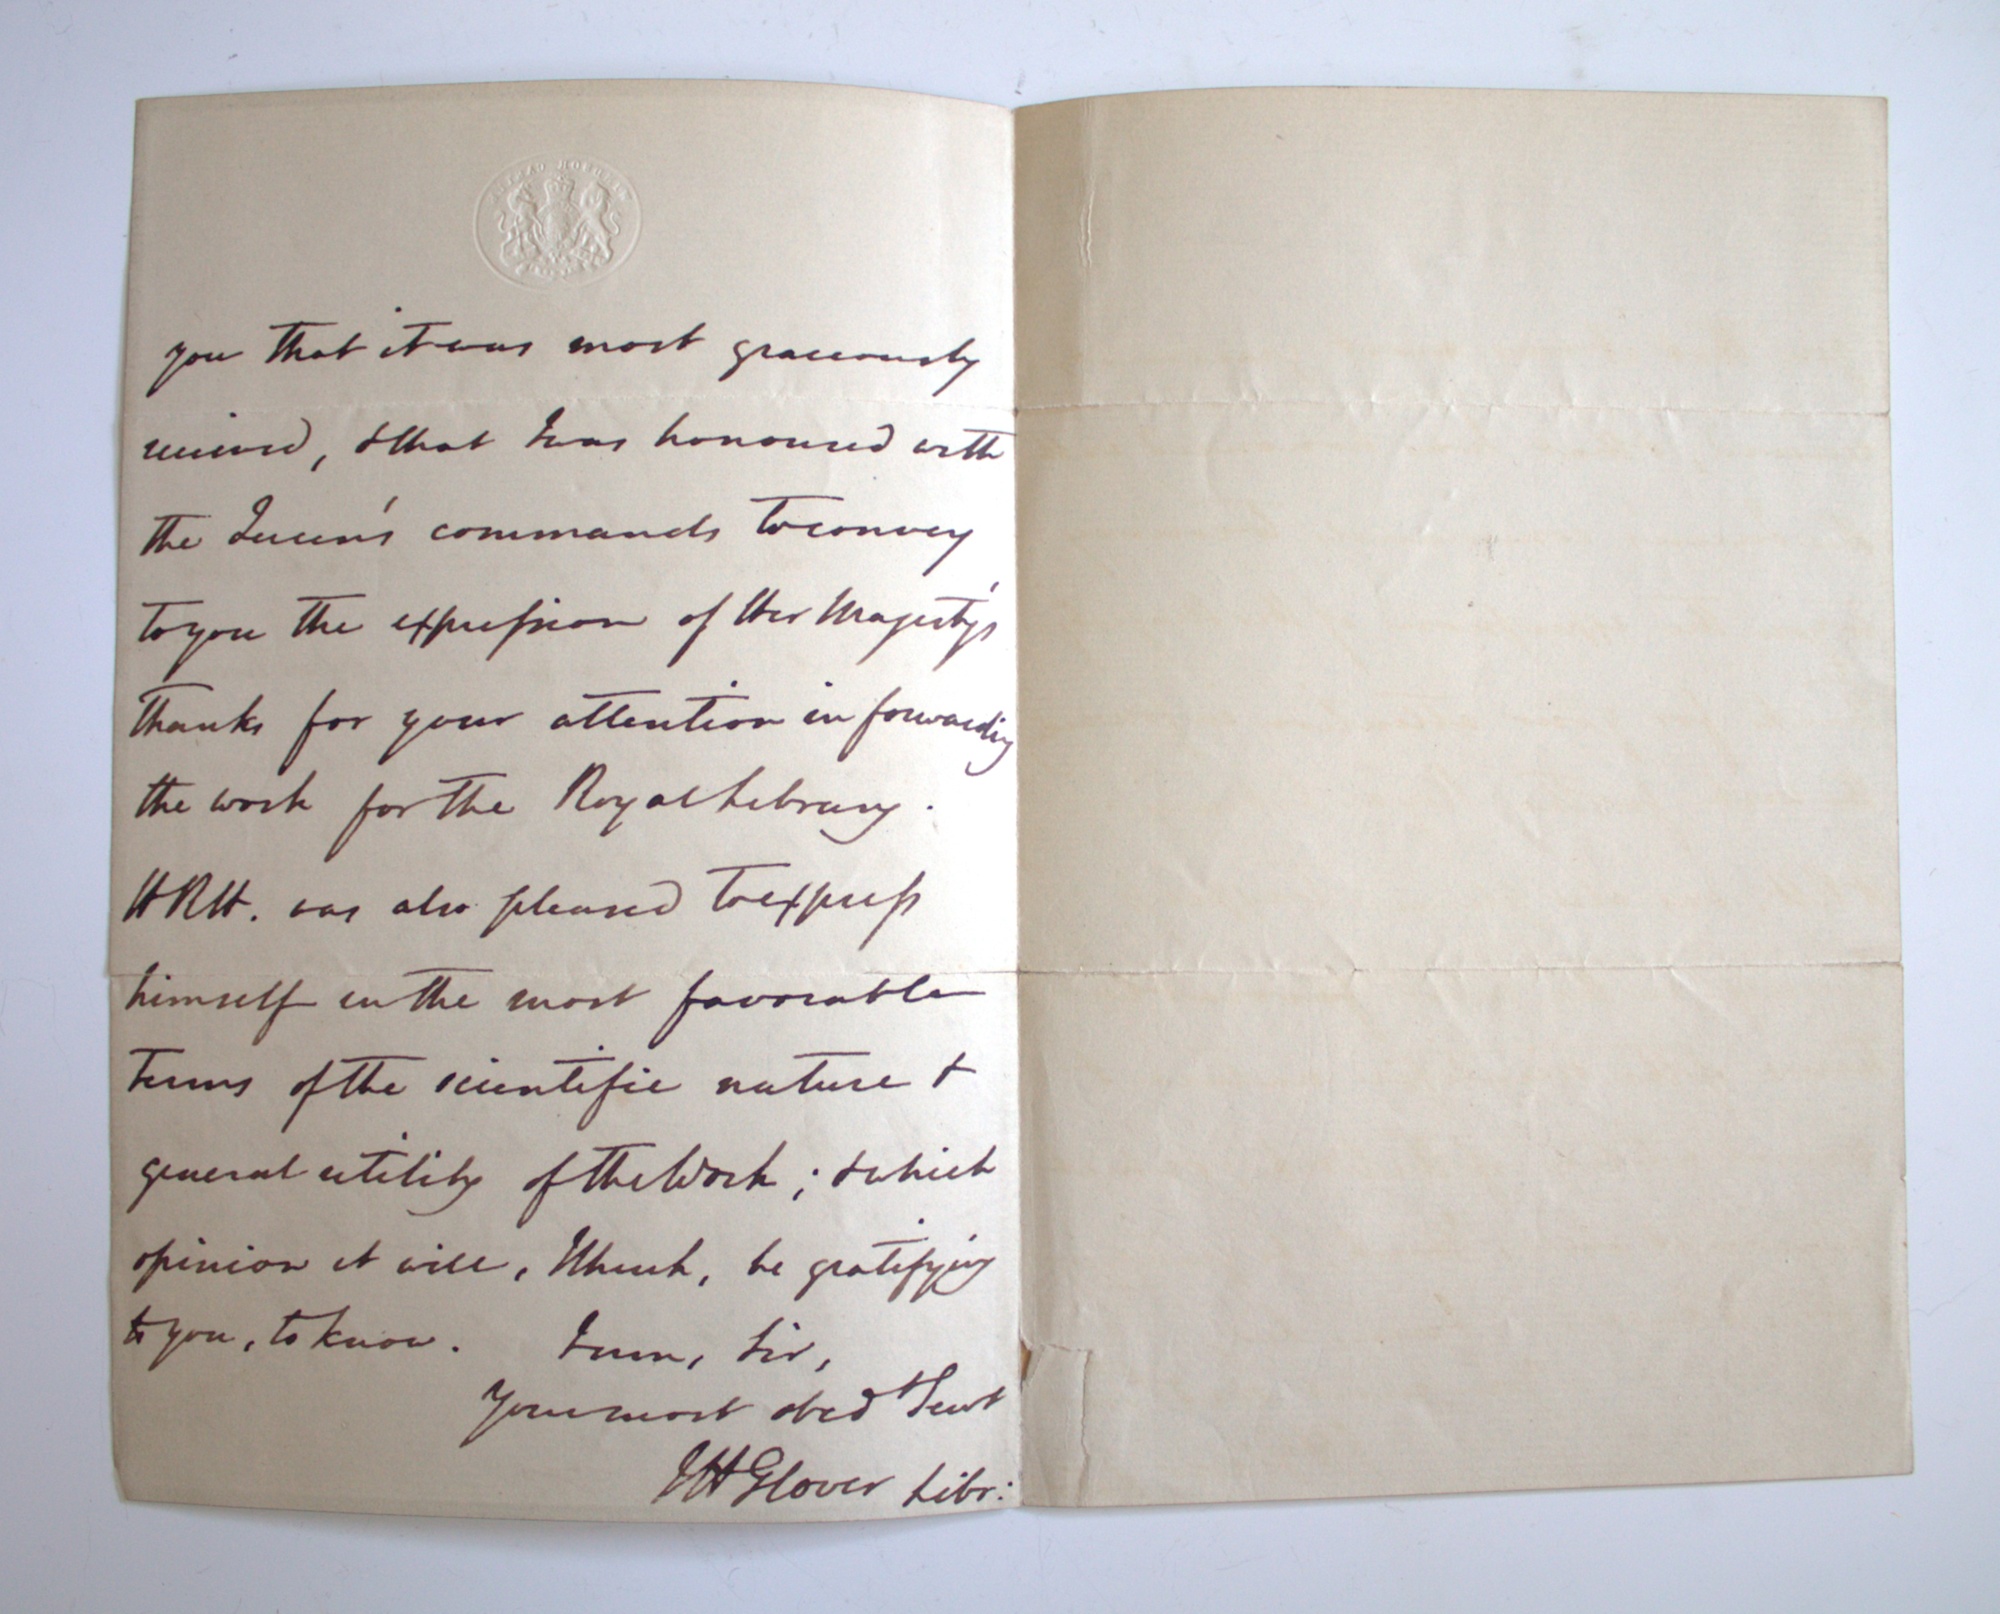 you that it was most graciously
received, & that I was honoured with
the Queen's commands to convey
to you the expression of Her Majesty's
thanks for your attention in forwarding
the work for the Royal Library.
HRH. was also pleased to express
himself in the most favorable
terms of the scientific nature &
general utility of the Work; & which
opinion it will, I think, be gratifying
to you, to know. I am, Sir,
Your most obed t Servt
JH Glover Libr: